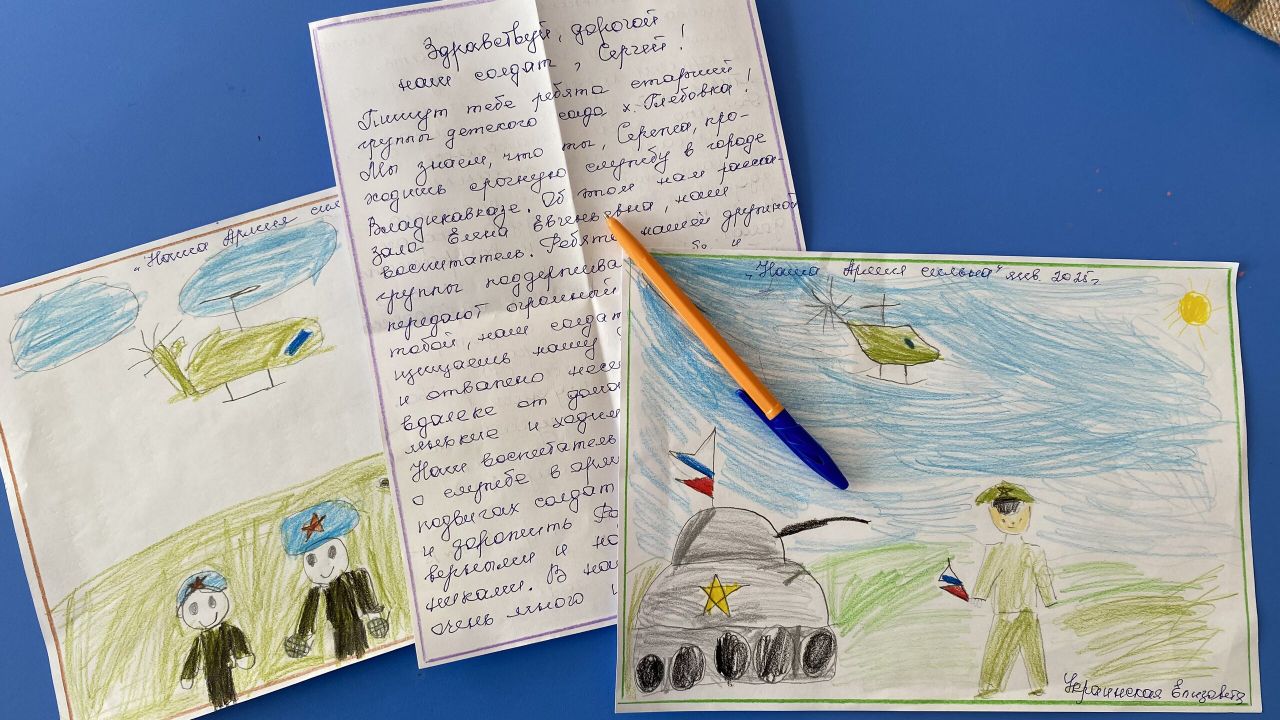 "Наша Армия
Здравствуй, дорогой
наш солдат, Сергей!
Пишут тебе ребята старшей
группы детского сада х. Глебовка!
Мы знаем, что ты, Серёжа, про-
ходишь срочную службу в городе
Владикавказе. Об этом нам расска-
зала Елена Евгеньевна, наш
воспитатель. Ребята нашей дружной
группы
передают огромный
тобой, наш солдат
щищаешь нашу
и отважно
вдалеке от дома
мягкие и
Наш воспитатель
о службе в
подвигах солдат
и дорожить
верными и
никами. В
очень много
"Наша Армия сильна" янв. 2025г
Украинская Елизавета